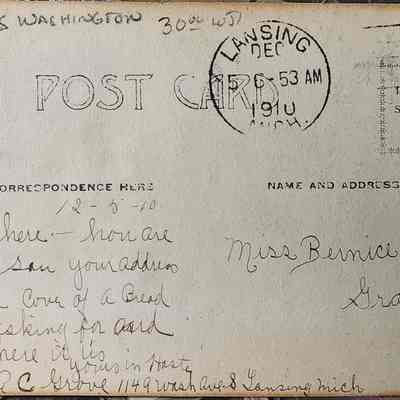 S WASHINGTON 30.00 WJ
LANSING
DEC
5 6-53 AM
1910
MICH.
POST CARD
CORRESPONDENCE HERE
NAME AND ADDRESS
12-5-10.
here - how are
saw your address
cover of a Bread
asking for card
here it is
yours in Haste
C Grove 1149 Wash Ave S Lansing Mich
Miss Bernice
Gra